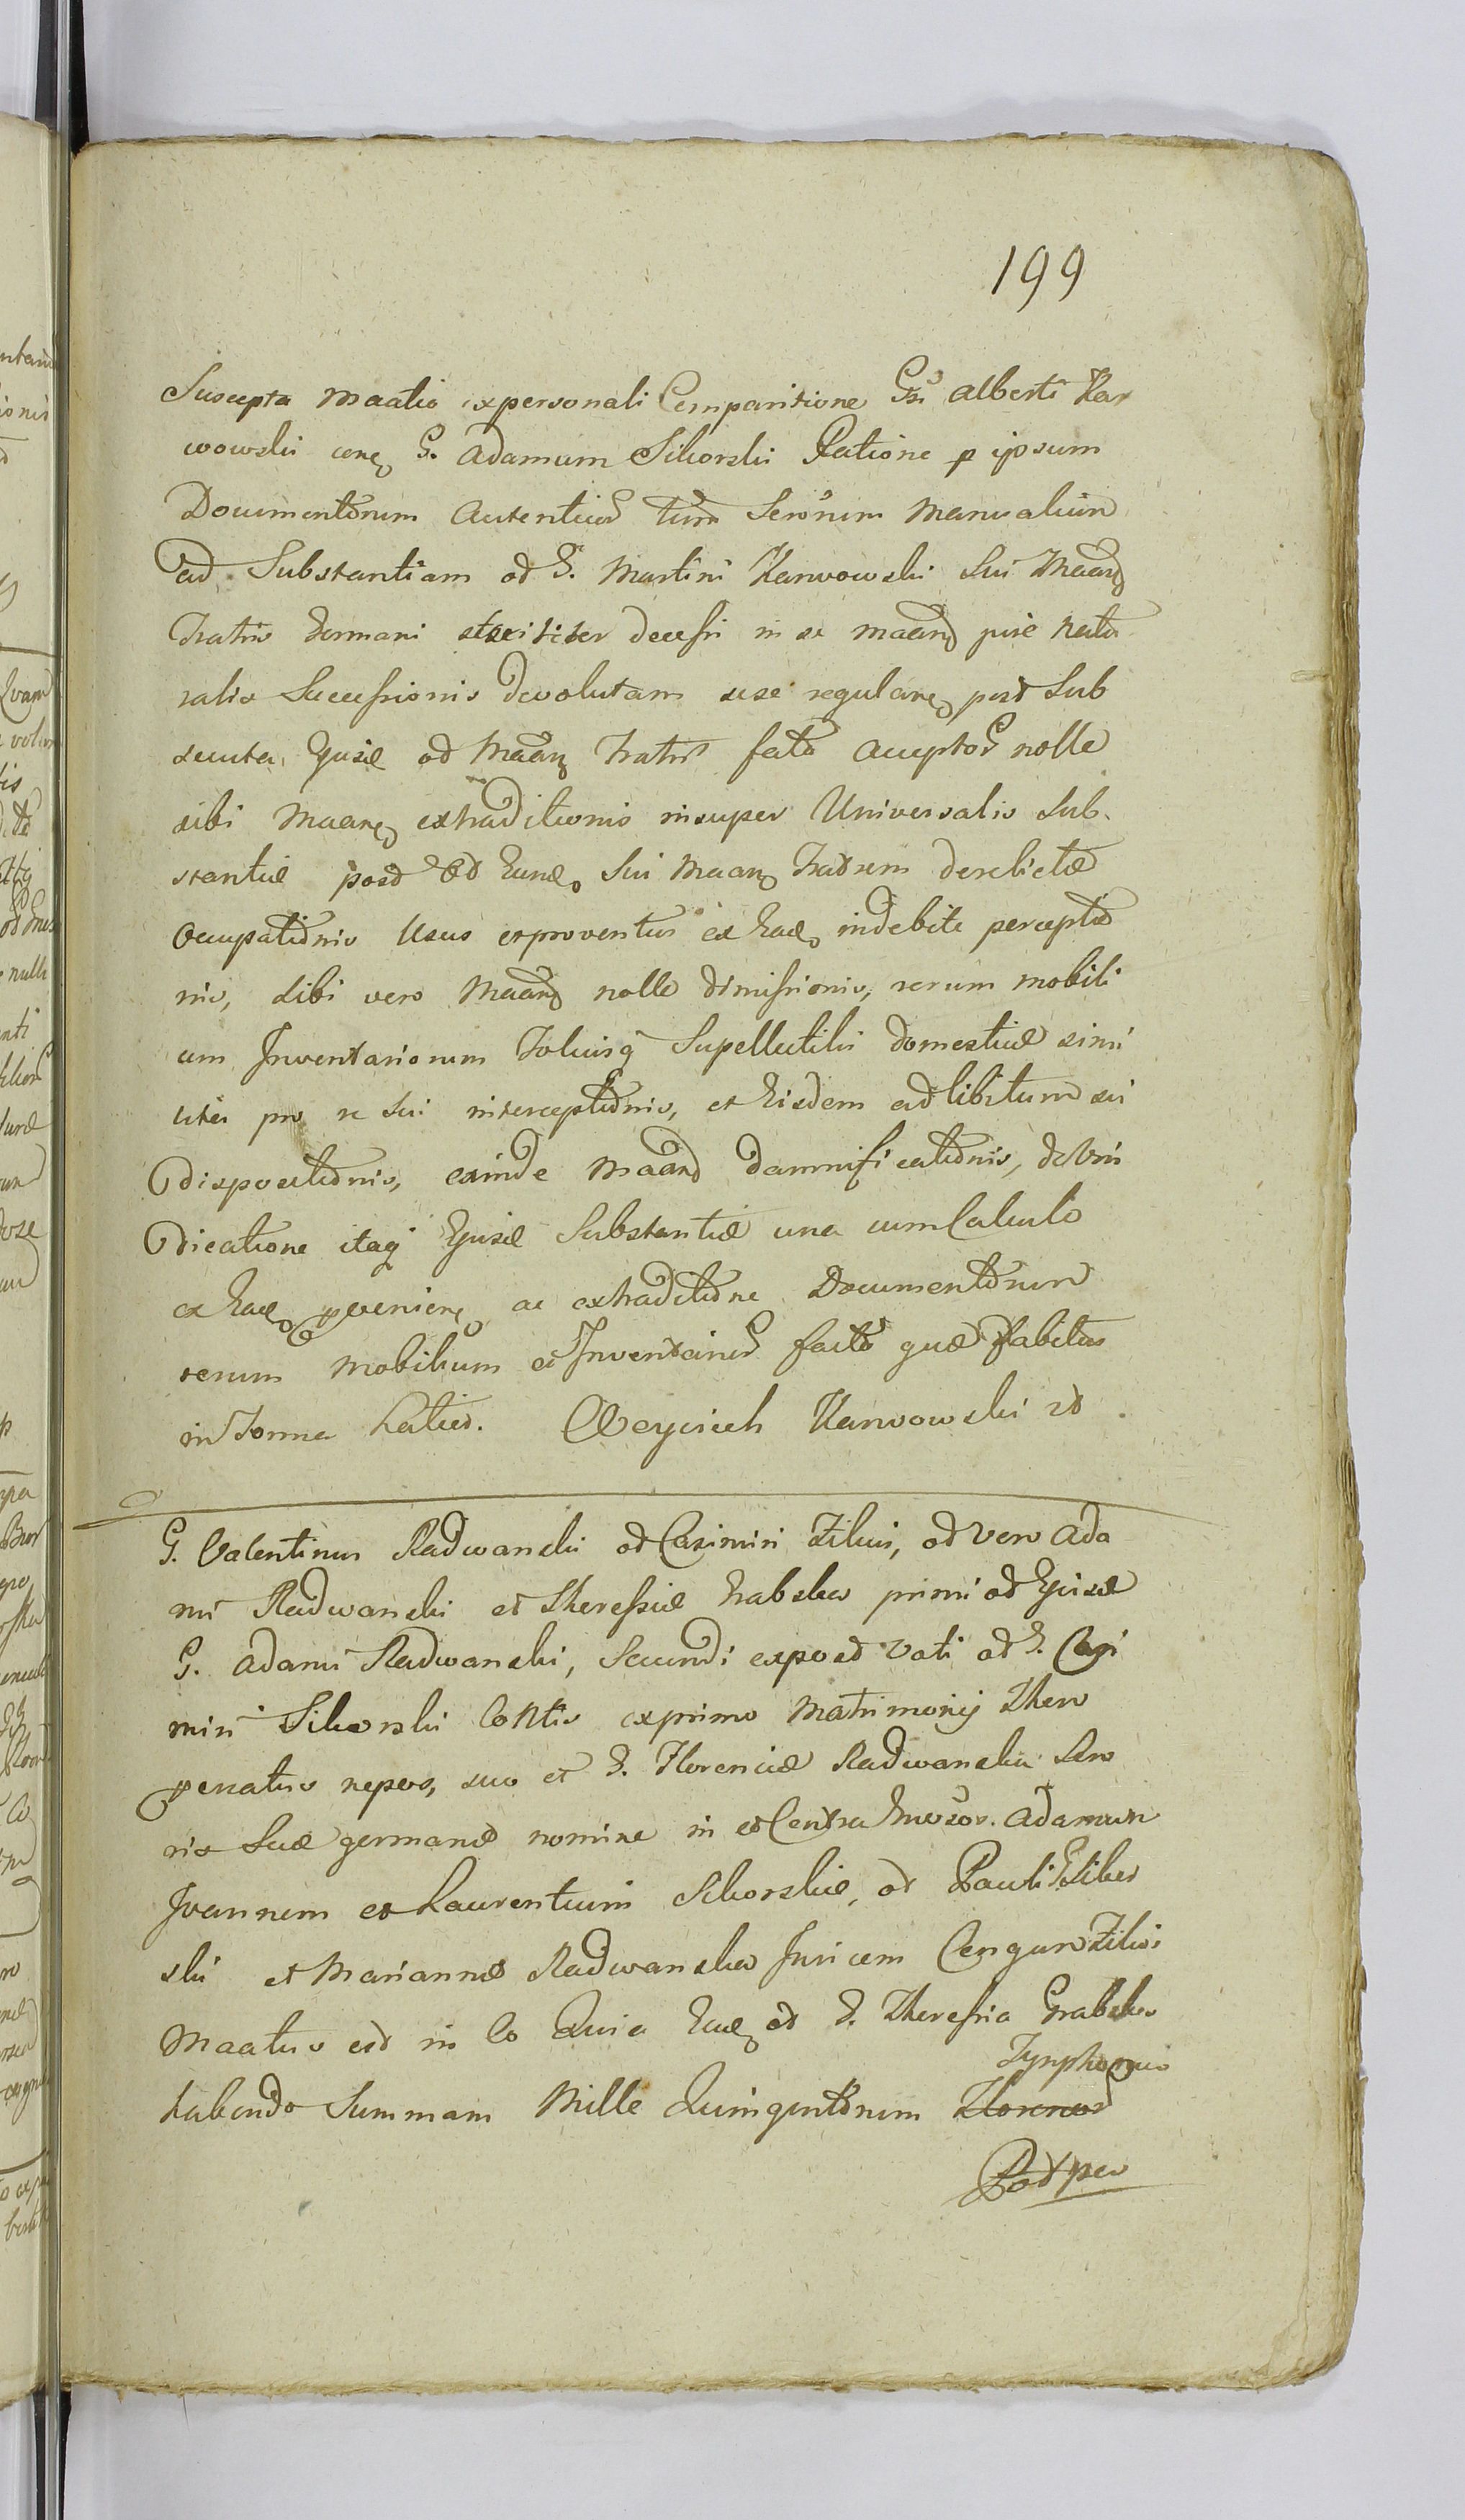 199
Suscepta Maatio ex personali Comparitione Gsi Alberti Kar
wowski cone G. Adamum Sikorski Ratione p ipsum
Documentorum Autenticor tum Sersnum Manualium
ad Substantiam od G. Martini Karwowski Sui Maan
Fratris Germani steriliter decessi in se maan jure natu
ralis Successionis devolutam sese regulan post Sub
secuta Ejusd od Maan Fratris fata acceptor nolle
sibi Maane extraditionis insuper Universalis Sub
stantiæ post Od Eund Sui Maan Fratrem derelictæ
Occupationis Usus et proventus ex Ead indebite perceptio
nis, sibi vero Maan nolle dimissionis, rerum mobili
um Inventariorum Totiusq Supellectilis domesticæ simi
liter pro se sui interceptionis, et Eisdem ad libitum sui
dispositionis, exinde Maan damnificationis, de Vin
dicatione itaq Ejusd Substantiæ una cum Calculo
ex Ead pvenien ac extraditione Documentorum
rerum Mobilium et Inventarior facto quæ habitus
in Forma Latius. Woyciech Karwowski
G. Valentinus Radwanski od Casimiri Filius, od vero Ada
mi Radwanski et Theressiæ Grabska primi od Ejusd
G. Adami Radwanski, Secundi expost Voti od G. Casi
miri Sikorski Cosortis ex primo Matrimonij Thoro
penatus nepos, suo et G. Florenciæ Radwanska Soro
ris Suæ germanæ nomine in et Contra Gnosos. Adamum
Joannem et Laurentium Sikorskie, od Pauli Sikor
ski et Mariannæ Radwanska Invicem Congum Filios
Maatus est in Eo Quia Ead od G. Theressia Grabska
habendo Summam Mille Quingentorum Florenor
Tynphonum